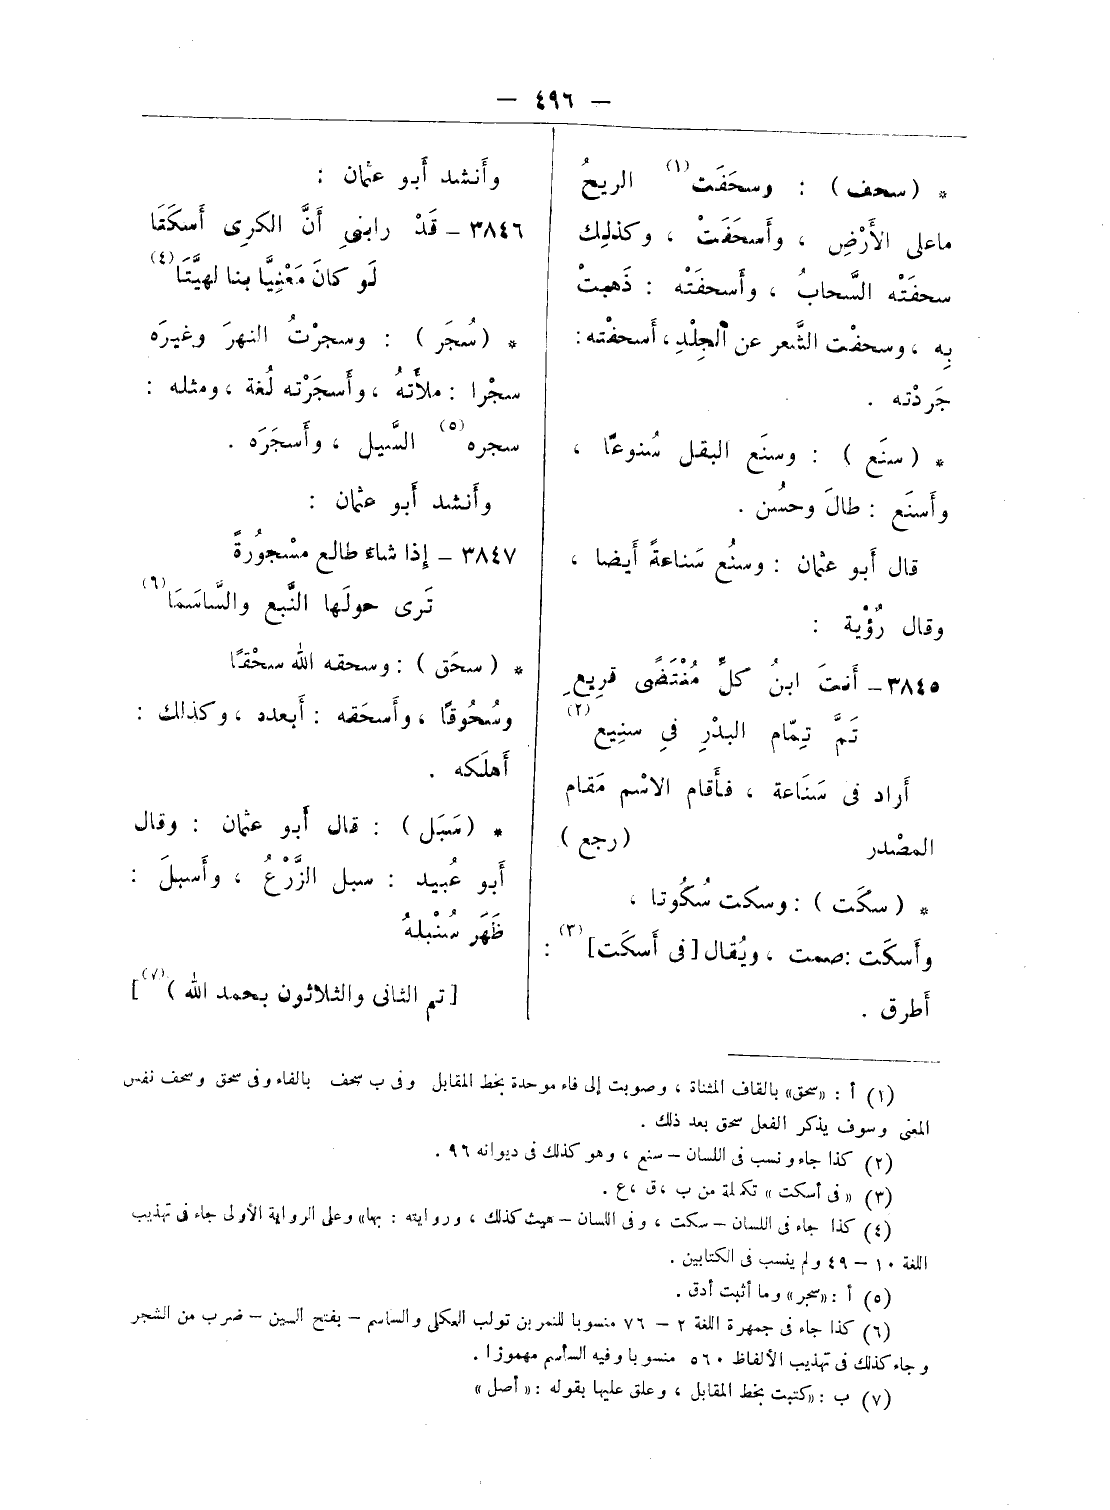 — ٤٩٦ —
* ( سحف ) : وسحَفَت(١) الريحُ
ماعلى الأَرْضِ ، وأَسحَفَتْ ، وكذلِك
سحفَتْه السَّحابُ ، وأَسحفَتْه : ذَهبتْ
بِه ، وسحفْت الشَّعر عن الْجِلْدِ ، أَسحفْته :
جَردْته .
* ( سنَع ) : وسنَع البقل سُنوعًا ،
وأَسنَع : طالَ وحسُن .
قال أَبو عثمان : وسنُع سَناعةً أَيضا ،
وقال رُؤْية :
٣٨٤٥ـ أَنتَ ابنُ كلِّ مُنْتَضًى قرِيع
تَمَّ تِمّام البدْرِ فىِ سنِيع(٢)
أَراد فى سَنَاعة ، فأَقام الاسْم مَقام
المصْدر ( رجع )
* ( سكَت ) : وسكت سُكُوتا ،
وأَسكَت : صمت ، ويُقال [ فى أَسكَت ](٣) :
أَطرق .
وأَنشد أَبو عثمان :
٣٨٤٦ ـ قَدْ رابنىِ أَنَّ الكرِى أَسكَتَا
لَو كانَ مَعْنِيًّا بنا لهيَّتَا(٤)
* ( سُجَر ) : وسجرْتُ النهرَ وغيرَه
سجْرا : ملأَتهُ ، وأَسجَرْته لُغة ، ومثله :
سجره(٥) السَّيل ، وأَسجَرَه .
وأَنشد أَبو عثمان :
٣٨٤٧ ـ إِذا شاءَ طالع مسْجورُةً
تَرى حولَها النَّبع والسَّاسَمَا(٦)
* ( سحَق ) : وسحقه الله سحْقًا
وسُحُوقًا ، وأَسحَقه : أَبعده ، وكذالك :
أَهلَكه .
* ( سَبَل ) : قال أَبو عثمان : وقال
أَبو عُبيد : سبل الزَّرْعُ ، وأَسبلَ :
ظَهَر سُنْبلهُ
[ تم الثانى والثلاثون بحمد الله )(٧) ]
(١) أ : «سحق» بالقاف المثناة ، وصوبت إلى فاء موحدة بخط المقابل وفى ب سحف بالفاء وفى سحق وسحف نفس
المعنى وسوف يذكر الفعل سحق بعد ذلك .
(٢) كذا جاء ونسب فى اللسان – سنع ، وهو كذلك فى ديوانه ٩٦ .
(٣) «فى أسكت» تكملة من ب ، ق ، ع .
(٤) كذا جاء فى اللسان – سكت ، وفى اللسان – هيث كذلك ، وروايته : بها» وعلى الرواية الأولى جاء فى تهذيب
اللغة ١٠ – ٤٩ ولم ينسب فى الكتابين .
(٥) أ : «سجر» وما أثبت أدق .
(٦) كذا جاء فى جمهرة اللغة ٢ – ٧٦ منسوبا للنمر بن تولب العكلى والساسم – بفتح السين – ضرب من الشجر
وجاء كذلك فى تهذيب الألفاظ ٥٦٠ منسوبا وفيه السأسم مهموزا .
(٧) ب : «كتبت بخط المقابل ، وعلق عليها بقوله : «أصل»